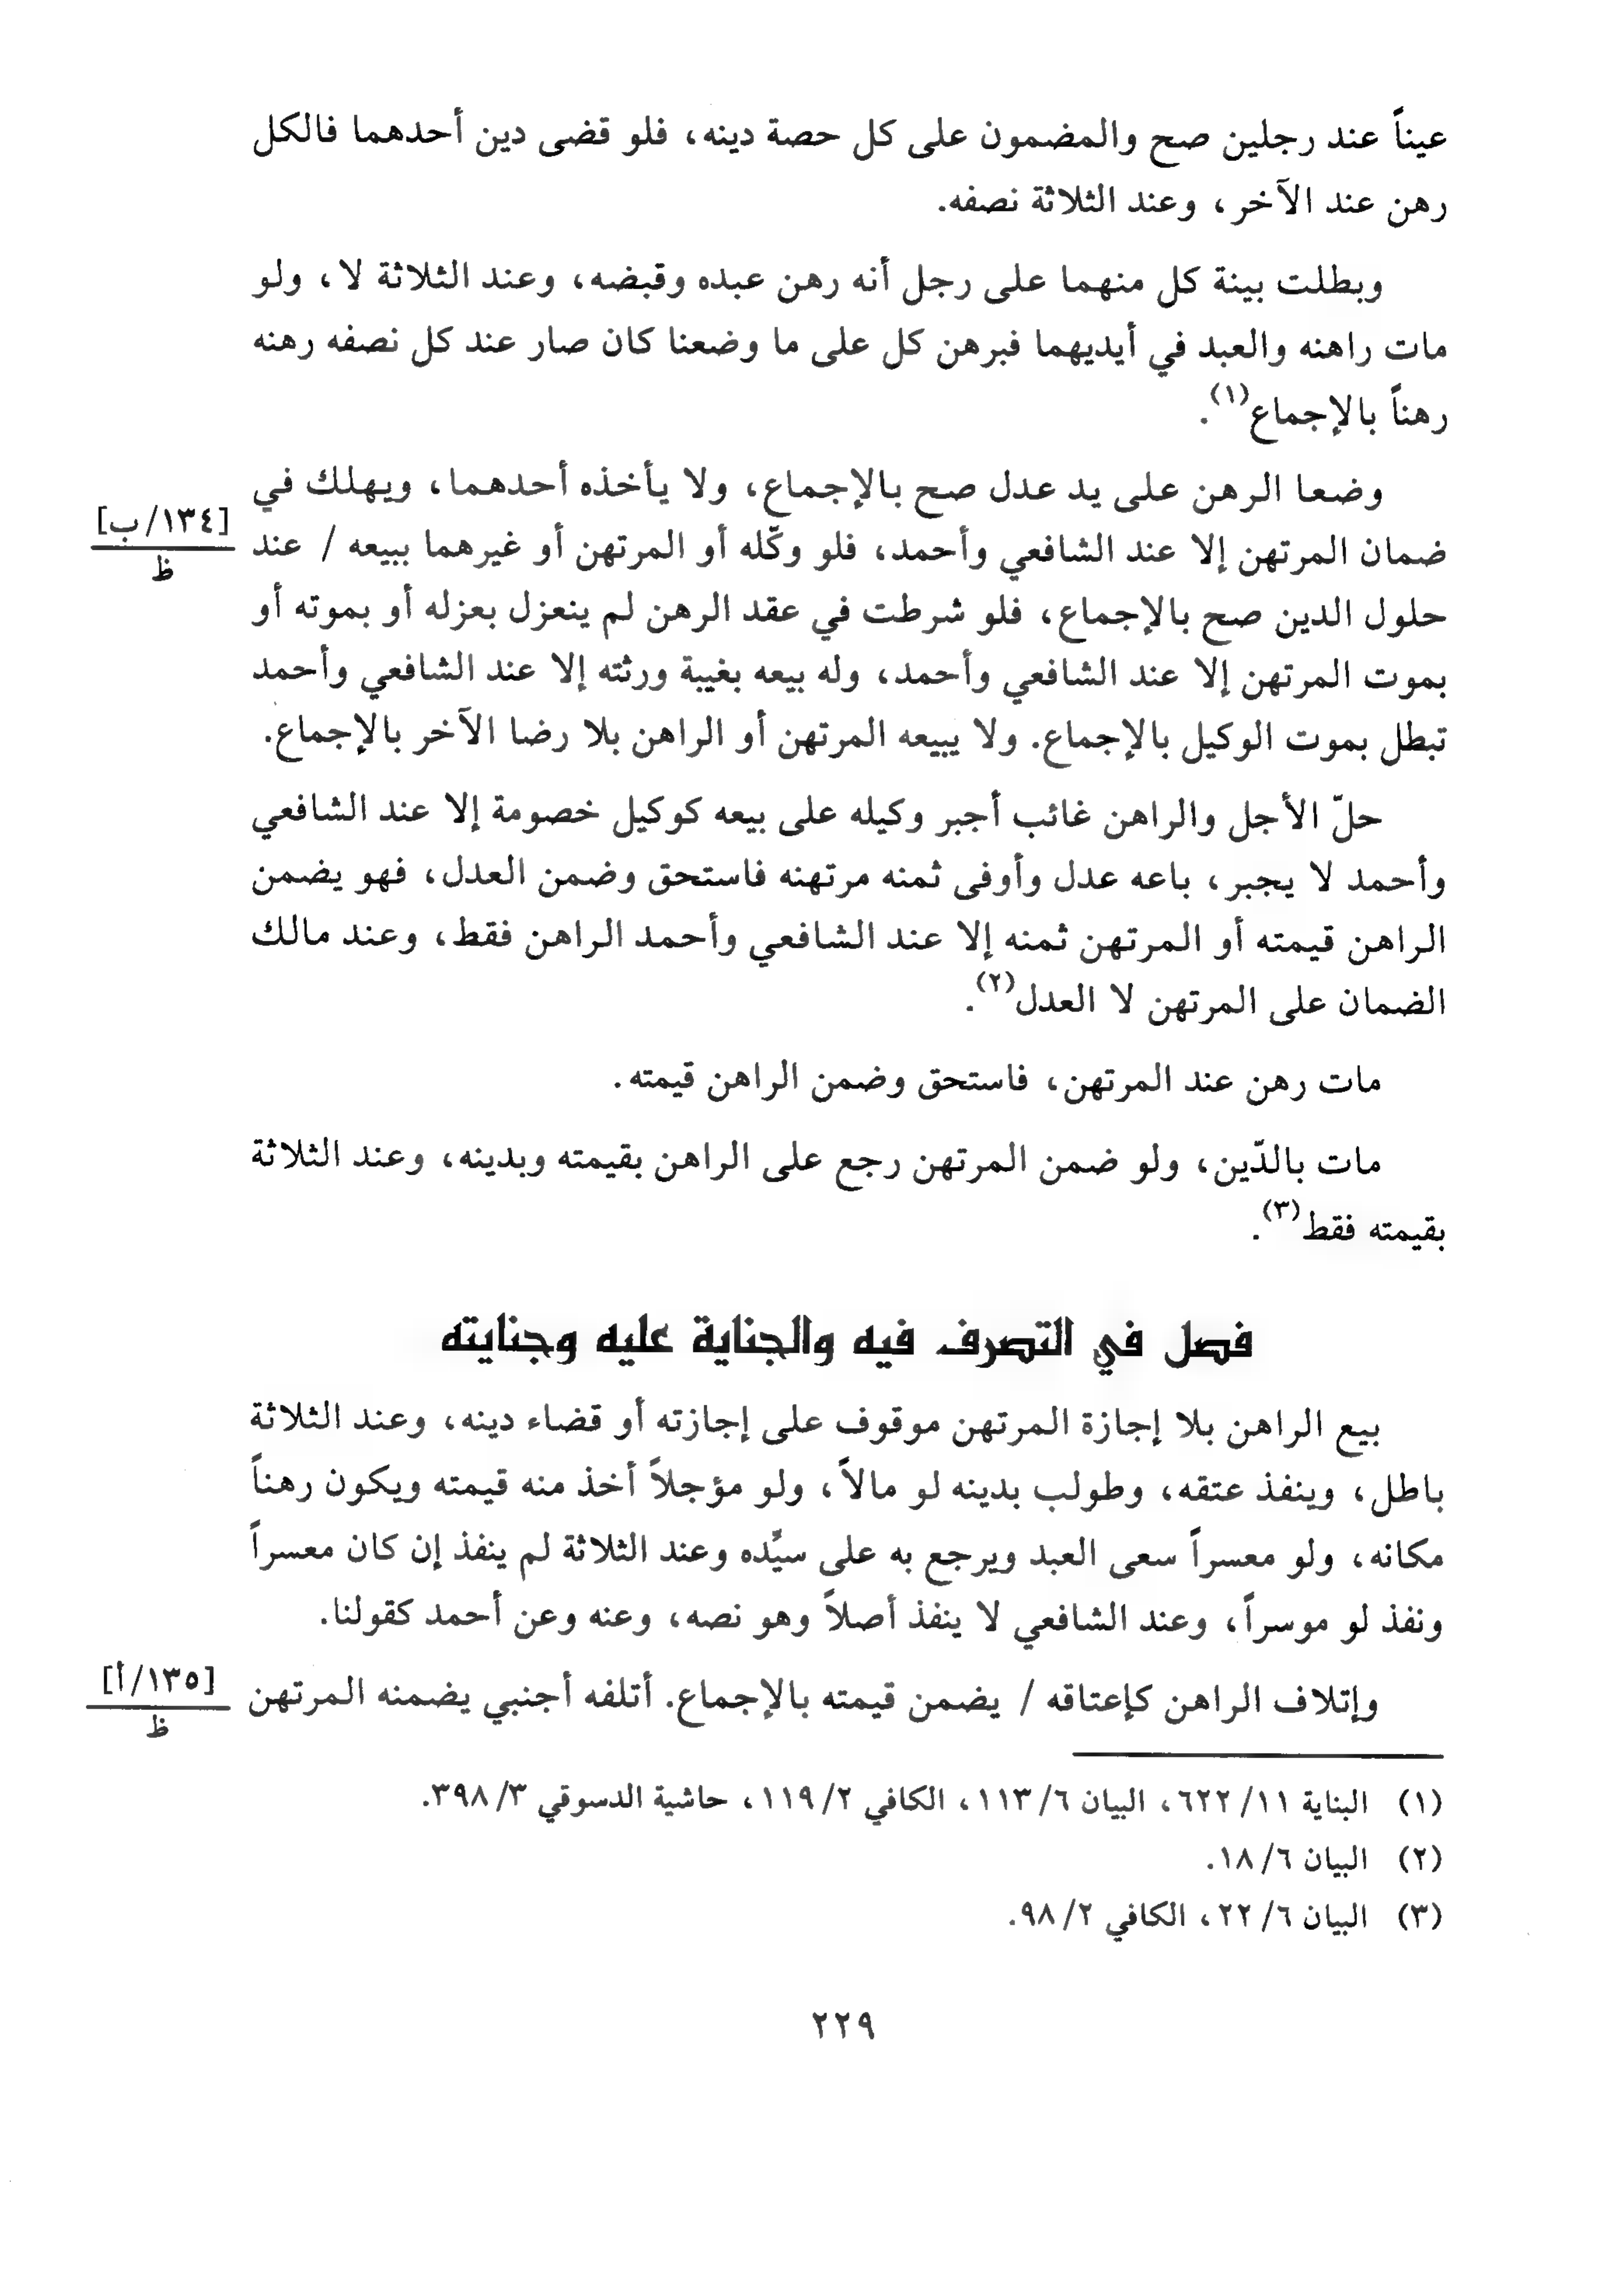 عيناً عند رجلين صح والمضمون على كل حصة دينه، فلو قضى دين أحدهما فالكل
رهن عند الآخر، وعند الثلاثة نصفه.
وبطلت بينة كل منهما على رجل أنه رهن عبده وقبضه، وعند الثلاثة لا، ولو
مات راهنه والعبد في أيديهما فبرهن كل على ما وضعنا كان صار عند كل نصفه رهنه
رهناً بالإجماع(١).
وضعا الرهن على يد عدل صح بالإجماع، ولا يأخذه أحدهما، ويهلك في
[١٣٤/ب]
ظ
ضمان المرتهن إلا عند الشافعي وأحمد، فلو وكّله أو المرتهن أو غيرهما ببيعه / عند
حلول الدين صح بالإجماع، فلو شرطت في عقد الرهن لم ينعزل بعزله أو بموته أو
بموت المرتهن إلا عند الشافعي وأحمد، وله بيعه بغيبة ورثته إلا عند الشافعي وأحمد
تبطل بموت الوكيل بالإجماع. ولا يبيعه المرتهن أو الراهن بلا رضا الآخر بالإجماع.
حلّ الأجل والراهن غائب أجبر وكيله على بيعه كوكيل خصومة إلا عند الشافعي
وأحمد لا يجبر، باعه عدل وأوفى ثمنه مرتهنه فاستحق وضمن العدل، فهو يضمن
الراهن قيمته أو المرتهن ثمنه إلا عند الشافعي وأحمد الراهن فقط، وعند مالك
الضمان على المرتهن لا العدل(٢).
مات رهن عند المرتهن، فاستحق وضمن الراهن قيمته.
مات بالدّين، ولو ضمن المرتهن رجع على الراهن بقيمته وبدينه، وعند الثلاثة
بقيمته فقط(٣).
فصل في التصرف فيه والجناية عليه وجنايته
بيع الراهن بلا إجازة المرتهن موقوف على إجازته أو قضاء دينه، وعند الثلاثة
باطل، وينفذ عتقه، وطولب بدينه لو مالاً، ولو مؤجلاً أخذ منه قيمته ويكون رهناً
مكانه، ولو معسراً سعى العبد ويرجع به على سيِّده وعند الثلاثة لم ينفذ إن كان معسراً
ونفذ لو موسراً، وعند الشافعي لا ينفذ أصلاً وهو نصه، وعنه وعن أحمد كقولنا.
وإتلاف الراهن كإعتاقه / يضمن قيمته بالإجماع. أتلفه أجنبي يضمنه المرتهن
[١٣٥/أ]
ظ
(١) البناية ١١/ ٦٢٢، البيان ٦/ ١١٣، الكافي ٢/ ١١٩، حاشية الدسوقي ٣/ ٣٩٨.
(٢) البيان ٦/ ١٨.
(٣) البيان ٦/ ٢٢، الكافي ٢/ ٩٨.
٢٢٩